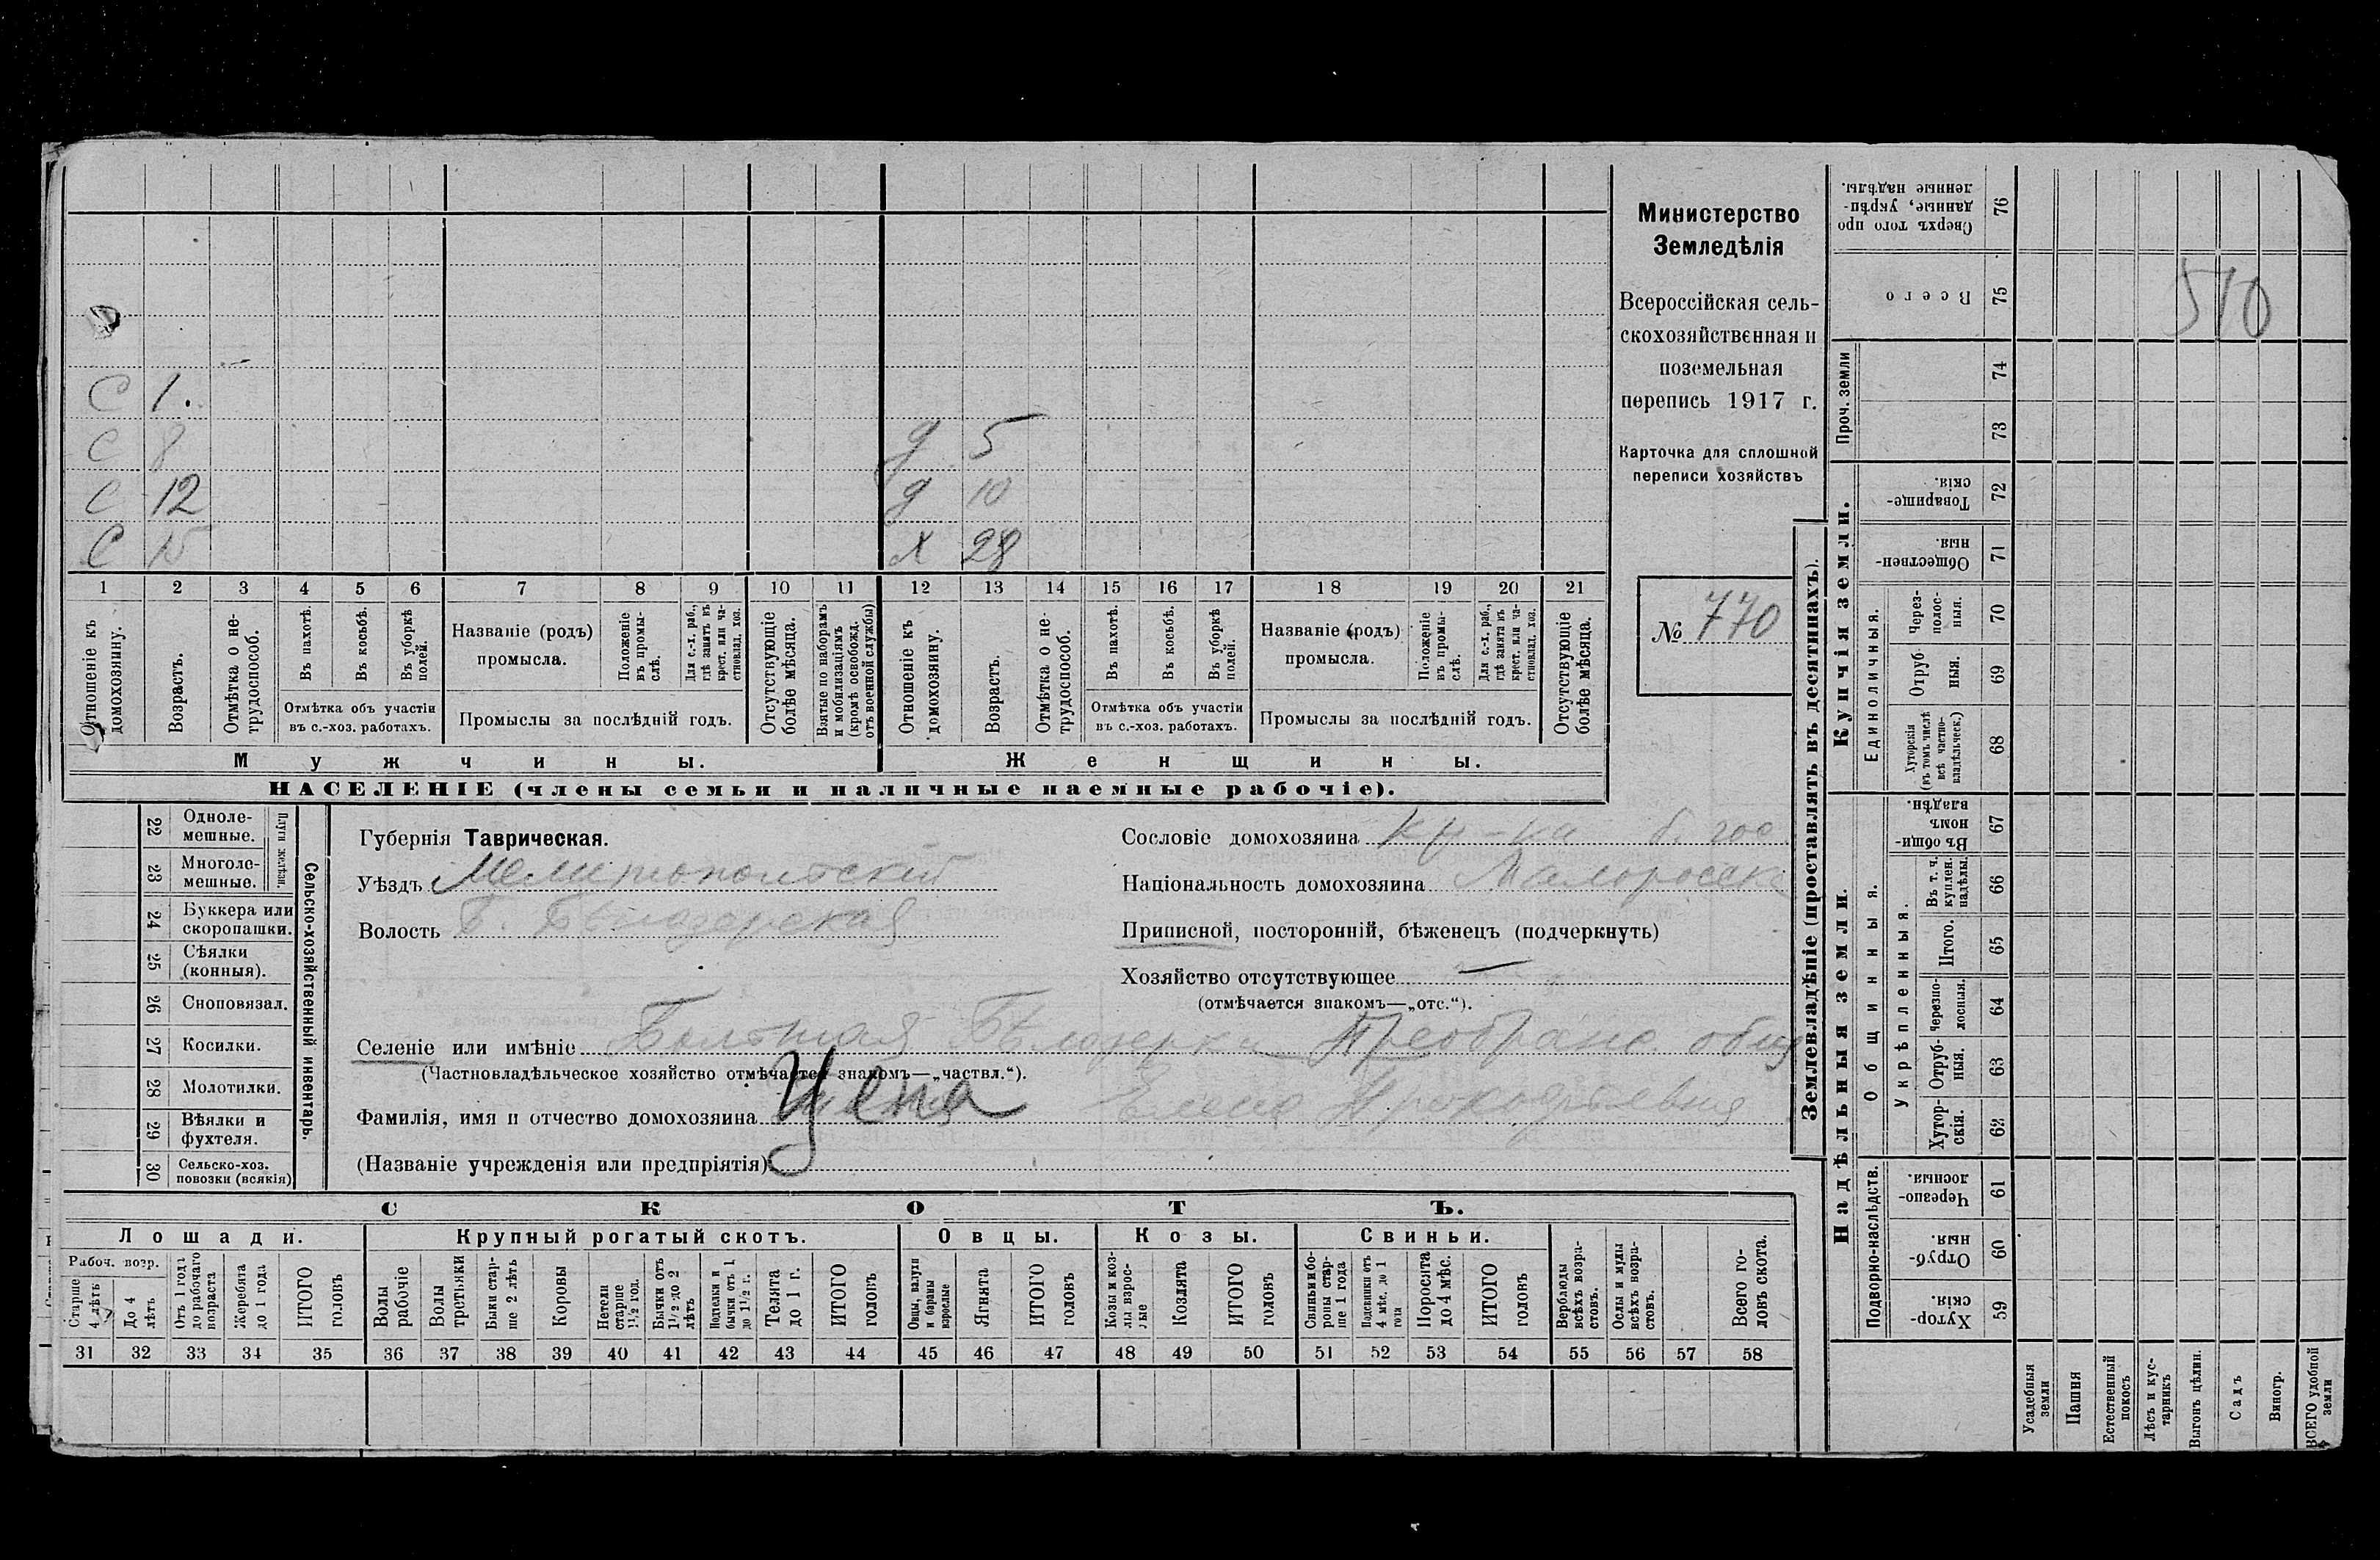 С 1.
С 8
д 5
С 12
д 10
С 15
х 28
1 2 3 4 5 6 7 8 9 10 11 12 13 14 15 16 17 18 19 20 21
Отношеніе къ домохозяину.
Возрастъ.
Отмѣтка о нетрудоспособ.
Въ пахотѣ.
Въ косьбѣ.
Въ уборкѣ полей.
Отмѣтка объ участіи
въ с.-хоз. работахъ.
Названіе (родъ)
промысла.
Положеніе въ промыслѣ.
Для с.-х. раб., гдѣ занятъ въ крест. или частновлад. хоз.
Промыслы за послѣдній годъ.
Отсутствующіе болѣе мѣсяца.
Взятые по наборамъ и мобилизаціямъ (кромѣ освобожд. отъ военной службы)
Отношеніе къ домохозяину.
Возрастъ.
Отмѣтка о нетрудоспособ.
Въ пахотѣ.
Въ косьбѣ.
Въ уборкѣ полей.
Отмѣтка объ участіи
въ с.-хоз. работахъ.
Названіе (родъ)
промысла.
Положеніе въ промыслѣ.
Для с.-х. раб., гдѣ занята въ крест. или частновлад. хоз.
Промыслы за послѣдній годъ.
Отсутствующіе болѣе мѣсяца.
Мужчины.
Женщины.
НАСЕЛЕНІЕ (члены семьи и наличные наемные рабочіе).
Министерство
Земледѣлія
Всероссійская сель-
скохозяйственная и
поземельная
перепись 1917 г.
Карточка для сплошной
переписи хозяйствъ
№ 770
Сельско-хозяйственный инвентарь.
Плуги желѣзн.
22 Одноле-
мешные.
23 Многоле-
мешные.
24 Буккера или
скоропашки.
25 Сѣялки
(конныя).
26 Сноповязал.
27 Косилки.
28 Молотилки.
29 Вѣялки и
фухтеля.
30 Сельско-хоз.
повозки (всякія)
Губернія Таврическая.
Уѣздъ Мелитопольскій
Волость Б. Бѣлозерская
Сословіе домохозяина кр-ка б. гос.
Національность домохозяина Малоросс
Приписной, посторонній, бѣженецъ (подчеркнуть)
Хозяйство отсутствующее —
(отмѣчается знакомъ—„отс.“).
Селеніе или имѣніе Большая Бѣлозерка Преображ. общ
(Частновладѣльческое хозяйство отмѣчается знакомъ—„частвл.“).
Фамилія, имя и отчество домохозяина Цепа Елена
(Названіе учрежденія или предпріятія)
СКОТЪ.
Лошади.
Крупный рогатый скотъ.
Овцы.
Козы.
Свиньи.
Рабоч. возр.
Старше 4 лѣтъ
До 4 лѣтъ
Отъ 1 года до рабочаго возраста
Жеребята до 1 года
ИТОГО головъ
Волы рабочіе
Волы третьяки
Быки старше 2 лѣтъ
Коровы
Нетели старше 1½ год.
Бычки отъ 1½ до 2 лѣтъ
Подтелки и бычки отъ 1 до 1½ г.
Телята до 1 г.
ИТОГО головъ
Овцы, валухи и бараны взрослые
Ягнята
ИТОГО головъ
Козы и козлы взрослые
Козлята
ИТОГО головъ
Свиньи и боровы старше 1 года
Подсвинки отъ 4 мѣс. до 1 года
Поросята до 4 мѣс.
ИТОГО головъ
Верблюды всѣхъ возрастовъ.
Ослы и мулы всѣхъ возрастовъ.
Всего головъ скота.
31 32 33 34 35 36 37 38 39 40 41 42 43 44 45 46 47 48 49 50 51 52 53 54 55 56 57 58
Землевладѣніе (проставлять въ десятинахъ).
Купчія земли.
Надѣльныя земли.
Сверхъ того проданные, укрѣпленные надѣлы. 76
Всего 75
510
Проч. земли
74
73
Товарищескія. 72
Общественныя. 71
Единоличныя.
Черезполосныя. 70
Отрубныя. 69
Хуторскія (въ томъ числѣ всѣ частновладѣльческ.) 68
Общинныя.
Въ общинномъ владѣн. 67
Укрѣпленныя.
Въ т. ч. куплен. надѣлы. 66
Итого. 65
Черезполосныя. 64
Отрубныя. 63
Хуторскія. 62
Подворно-наслѣдств.
Черезполосныя. 61
Отрубныя. 60
Хуторскія. 59
Усадебныя земли
Пашня
Естественный покосъ
Лѣсъ и кустарникъ
Выгонъ цѣлин.
Садъ
Виногр.
ВСЕГО удобной земли